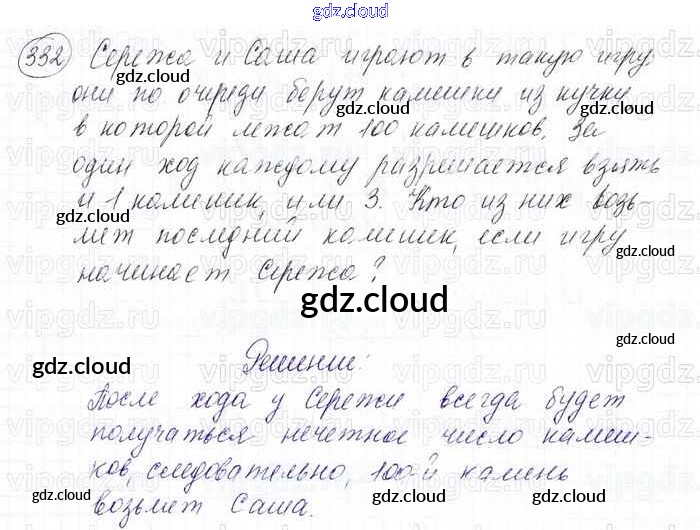 gdz.cloud
332 Сережа и Саша играют в такую игру:
gdz.cloud
они по очереди берут камешки из кучки
gdz.cloud gdz.cloud
в которой лежат 100 камешков. За
один ход каждому разрешается взять
и 1 камешек, или 3. Кто из них возь-
gdz.cloud
мет последний камешек, если игру
gdz.cloud
начинает Сережа?
gdz.cloud
gdz.cloud Решение: gdz.cloud
После хода у Сережи всегда будет
получаться нечетное число камеш-
ков, следовательно, 100-й камень
gdz.cloud gdz.cloud gdz.cloud
возьмет Саша.